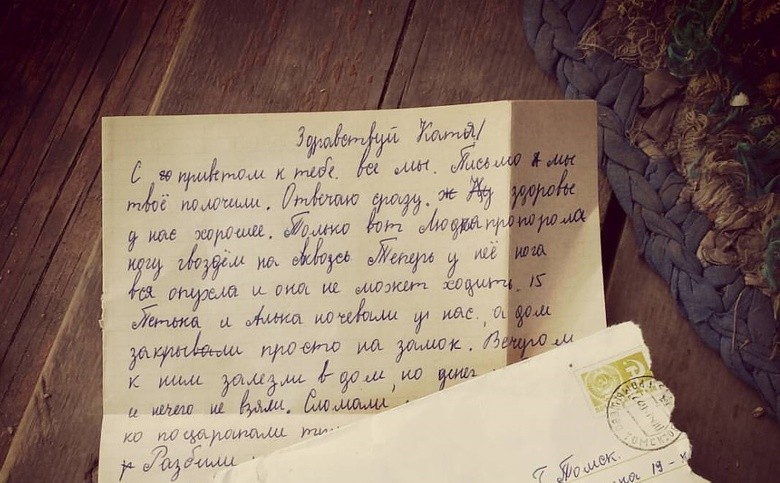 Здравствуй Катя!
С приветом к тебе все мы. Письмо мы
твоё полочили. Отвечаю сразу. Ну здоровье
у нас хорошее. Только вот Людка пропорола
ногу гвоздём насквозь Теперь у неё нога
вся опухла и она не может ходить. 15
Петька и Алька ночевали у нас, а дом
закрывали просто на замок. Вечером
к ним залезли в дом, но денег
и нечего не взяли. Сломали
ко поцарапали
Разбили
г. Томск.
19 -
ТОМСК